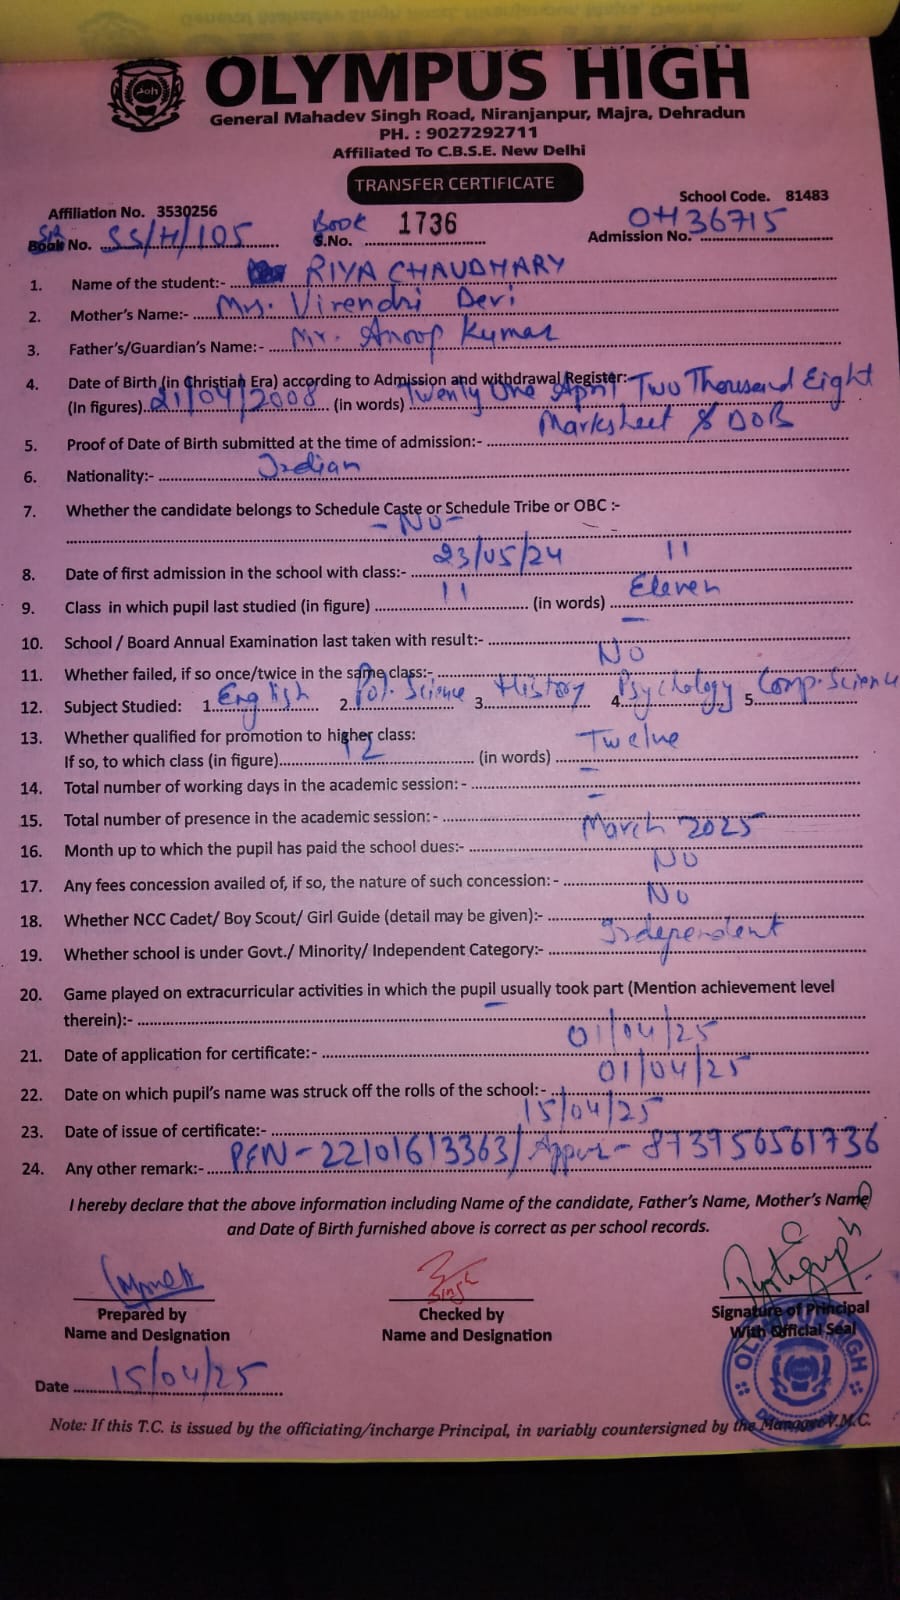 OLYMPUS HIGH
General Mahadev Singh Road, Niranjanpur, Majra, Dehradun
PH. : 9027292711
Affiliated To C.B.S.E. New Delhi
TRANSFER CERTIFICATE
Affiliation No. 3530256 School Code. 81483
SR No. SS/H/105 Book S.No. 1736 Admission No. OH36715
1. Name of the student:- RIYA CHAUDHARY
2. Mother's Name:- Mrs. Virendri Devi
3. Father's/Guardian's Name:- Mr. Anoop Kumar
4. Date of Birth (in Christian Era) according to Admission and withdrawal Register:-
(In figures) 21/04/2008 (in words) Twenty One April Two Thousand Eight
5. Proof of Date of Birth submitted at the time of admission:- Marksheet & DOB
6. Nationality:- Indian
7. Whether the candidate belongs to Schedule Caste or Schedule Tribe or OBC :-
- No -
8. Date of first admission in the school with class:- 23/05/24 11
9. Class in which pupil last studied (in figure) 11 (in words) Eleven
10. School / Board Annual Examination last taken with result:- -
11. Whether failed, if so once/twice in the same class:- No
12. Subject Studied: 1. English 2. Pol. Science 3. History 4. Psychology 5. Comp. Science
13. Whether qualified for promotion to higher class:
If so, to which class (in figure) 12 (in words) Twelve
14. Total number of working days in the academic session: - -
15. Total number of presence in the academic session: - -
16. Month up to which the pupil has paid the school dues:- March 2025
17. Any fees concession availed of, if so, the nature of such concession: - No
18. Whether NCC Cadet/ Boy Scout/ Girl Guide (detail may be given):- No
19. Whether school is under Govt./ Minority/ Independent Category:- Independent
20. Game played on extracurricular activities in which the pupil usually took part (Mention achievement level
therein):- -
21. Date of application for certificate:- 01/04/25
22. Date on which pupil's name was struck off the rolls of the school:- 01/04/25
23. Date of issue of certificate:- 15/04/25
24. Any other remark:- PEN-22101613363/ - 873956561736
I hereby declare that the above information including Name of the candidate, Father's Name, Mother's Name
and Date of Birth furnished above is correct as per school records.
Prepared by Checked by Signature of Principal
Name and Designation Name and Designation With Official Seal
Date 15/04/25
Note: If this T.C. is issued by the officiating/incharge Principal, in variably countersigned by the Manager V.M.C.